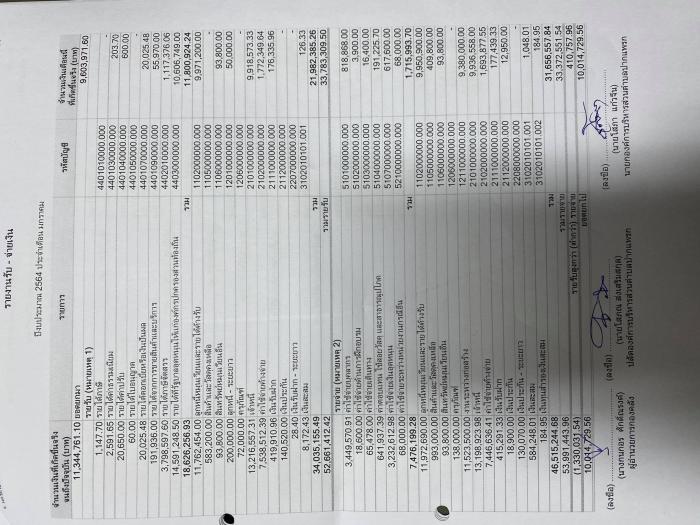 รายงานรับ - จ่ายเงิน
ปีงบประมาณ 2564 ประจำเดือน มกราคม
จำนวนเงินเกิดขึ้นจริง จนถึงปัจจุบัน (บาท) รายการ รหัสบัญชี จำนวนเงินเดือนนี้ ที่เกิดขึ้นจริง (บาท)
11,344,761.10 ยอดยกมา 9,603,971.60
รายรับ (หมายเหตุ 1)
1,147.70 รายได้ภาษี 4401010000.000 -
2,591.65 รายได้ค่าธรรมเนียม 4401030000.000 203.70
20,650.00 รายได้ค่าปรับ 4401040000.000 600.00
60.00 รายได้ใบอนุญาต 4401050000.000 -
20,025.48 รายได้ดอกเบี้ยหรือเงินปันผล 4401070000.000 20,025.48
191,936.00 รายได้จากการขายสินค้าและบริการ 4401090000.000 55,970.00
3,798,597.60 รายได้ภาษีจัดสรร 4402010000.000 1,117,376.06
14,591,248.50 รายได้ที่รัฐบาลอุดหนุนให้แก่องค์กรปกครองส่วนท้องถิ่น 4403000000.000 10,606,749.00
18,626,256.93 รวม 11,800,924.24
11,762,454.00 ลูกหนี้หมุนเวียนและรายได้ค้างรับ 1102000000.000 9,971,200.00
583,200.00 สินค้าและวัสดุคงเหลือ 1105000000.000 -
93,800.00 สินทรัพย์หมุนเวียนอื่น 1106000000.000 93,800.00
200,000.00 ลูกหนี้ - ระยะยาว 1201000000.000 50,000.00
72,000.00 ครุภัณฑ์ 1206000000.000 -
13,216,557.31 เจ้าหนี้ 2101000000.000 9,918,573.33
7,538,512.39 ค่าใช้จ่ายค้างจ่าย 2102000000.000 1,772,349.64
419,910.96 เงินรับฝาก 2111000000.000 176,335.96
140,520.00 เงินประกัน 2112000000.000 -
28.40 เงินรับฝาก - ระยะยาว 2207000000.000 -
8,172.43 เงินสะสม 3102010101.001 126.33
34,035,155.49 รวม 21,982,385.26
52,661,412.42 รวมรายรับ 33,783,309.50
รายจ่าย (หมายเหตุ 2)
3,449,570.91 ค่าใช้จ่ายบุคลากร 5101000000.000 818,868.00
18,600.00 ค่าใช้จ่ายด้านการฝึกอบรม 5102000000.000 3,900.00
65,478.00 ค่าใช้จ่ายเดินทาง 5103000000.000 16,400.00
641,937.39 ค่าตอบแทน ใช้สอยวัสดุ และสาธารณูปโภค 5104000000.000 191,225.70
3,232,612.98 ค่าใช้จ่ายเงินอุดหนุน 5107000000.000 617,600.00
68,000.00 ค่าใช้จ่ายระหว่างหน่วยงานกรณีอื่น 5210000000.000 68,000.00
7,476,199.28 รวม 1,715,993.70
11,972,690.00 ลูกหนี้หมุนเวียนและรายได้ค้างรับ 1102000000.000 9,950,900.00
993,000.00 สินค้าและวัสดุคงเหลือ 1105000000.000 409,800.00
93,800.00 สินทรัพย์หมุนเวียนอื่น 1106000000.000 93,800.00
138,000.00 ครุภัณฑ์ 1206000000.000 -
11,523,500.00 งานระหว่างก่อสร้าง 1211000000.000 9,380,000.00
13,198,925.98 เจ้าหนี้ 2101000000.000 9,936,558.00
7,446,636.41 ค่าใช้จ่ายค้างจ่าย 2102000000.000 1,693,877.55
415,291.33 เงินรับฝาก 2111000000.000 177,439.33
18,900.00 เงินประกัน 2112000000.000 12,950.00
130,078.00 เงินประกัน - ระยะยาว 2208000000.000 -
584,248.01 เงินสะสม 3102010101.001 1,048.01
184.95 เงินสำรองเงินสะสม 3102010101.002 184.95
46,515,244.68 รวม 31,656,557.84
53,991,443.96 รวมรายจ่าย 33,372,551.54
(1,330,031.54) รายรับสูงกว่า (ต่ำกว่า) รายจ่าย 410,757.96
10,014,729.56 ยอดยกไป 10,014,729.56
(ลงชื่อ) (ลงชื่อ) (ลงชื่อ)
ผู้อำนวยการกองคลัง ปลัดองค์การบริหารส่วนตำบลปากแพรก นายกองค์การบริหารส่วนตำบลปากแพรก